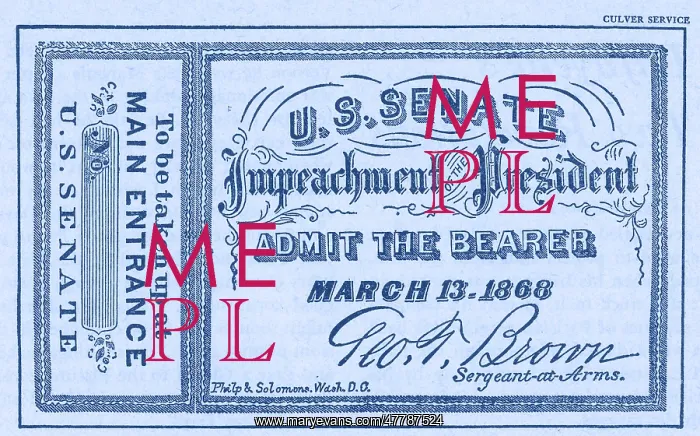 CULVER SERVICE
U.S. SENATE
No.
MAIN ENTRANCE
To be taken up at
U.S. SENATE
Impeachment OF THE President
ADMIT THE BEARER
MARCH 13.1868
Geo. T. Brown
Sergeant-at-Arms.
Philp & Solomons. Wash. D.C.
ME
PL
ME
PL
www.maryevans.com/47787524